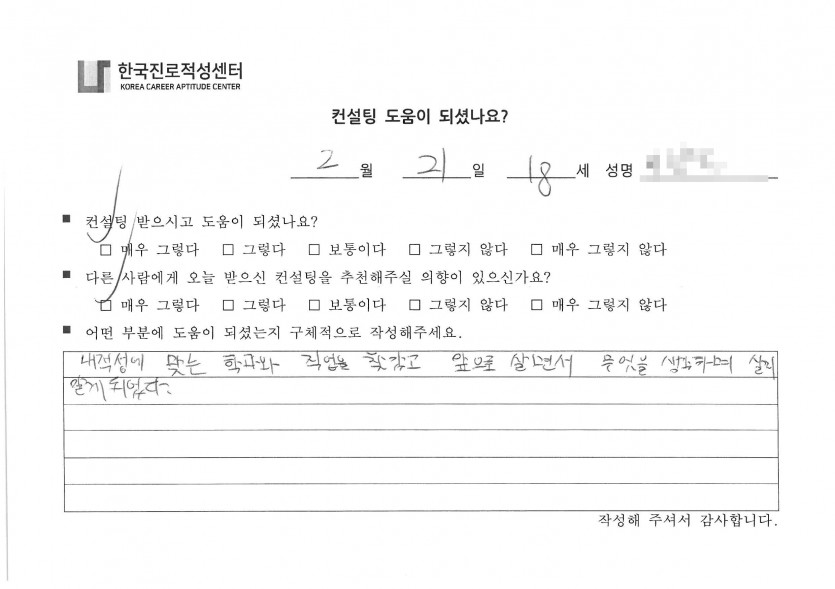 한국진로적성센터
KOREA CAREER APTITUDE CENTER
컨설팅 도움이 되셨나요?
2 월 21 일 18 세 성명
■ 컨설팅 받으시고 도움이 되셨나요?
□ 매우 그렇다 □ 그렇다 □ 보통이다 □ 그렇지 않다 □ 매우 그렇지 않다
■ 다른 사람에게 오늘 받으신 컨설팅을 추천해주실 의향이 있으신가요?
□ 매우 그렇다 □ 그렇다 □ 보통이다 □ 그렇지 않다 □ 매우 그렇지 않다
■ 어떤 부분에 도움이 되셨는지 구체적으로 작성해주세요.
내적성에 맞는 학과와 직업을 찾았고 앞으로 살면서 무엇을 생각하며 살지
알게 되었다.
작성해 주셔서 감사합니다.